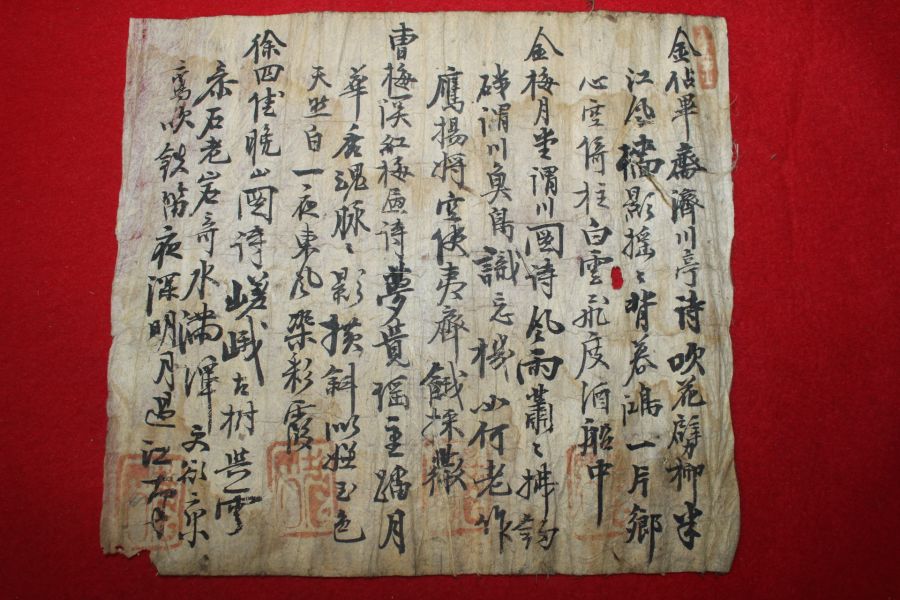 金佔畢齋濟川亭詩吹花劈柳半
江風檣影搖〻背暮鴻一片鄉
心空倚柱白雲飛度酒船中
金梅月堂渭川圖詩風雨蕭〻拂釣
磯渭川魚鳥識忘機如何老作
鷹揚將空使夷齊餓採薇
曹梅溪紅梅画詩夢覺瑤臺踏月
華香魂脉〻影橫斜似嫌玉色
天然白一夜東風染彩霞
徐四佳晩山圖詩嵯峨古樹與雲
參石老岩奇水滿潭又欲乘
鸞吹鐵笛夜深明月過江南